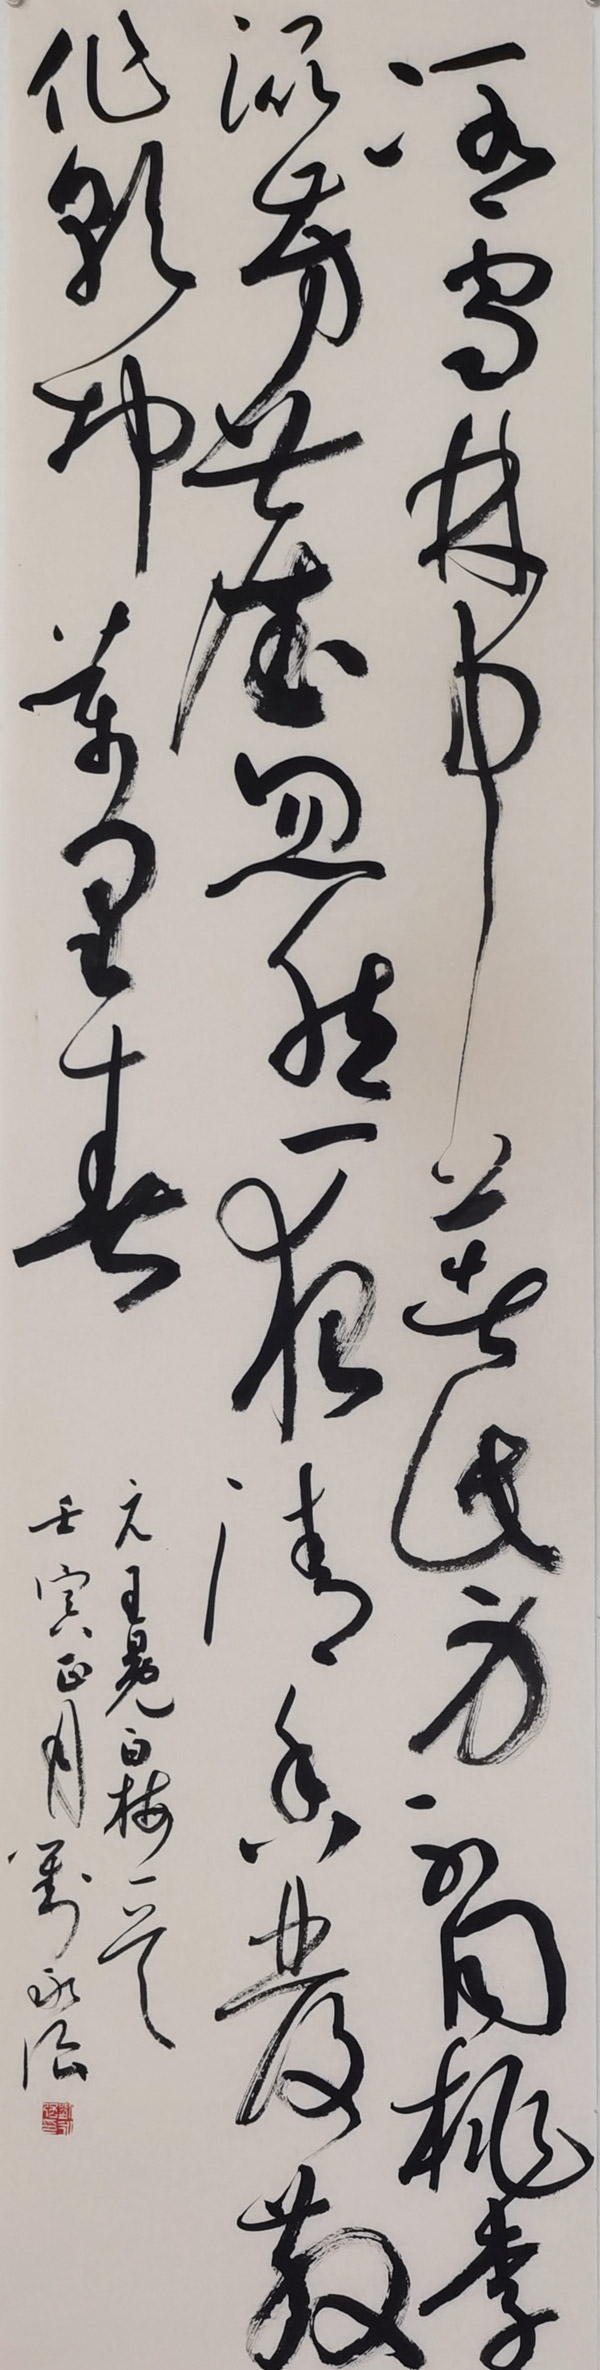 冰雪林中著此身不同桃李
混芳塵忽然一夜清香發散
作乾坤萬里春
元王冕白梅一首
壬寅正月劉永